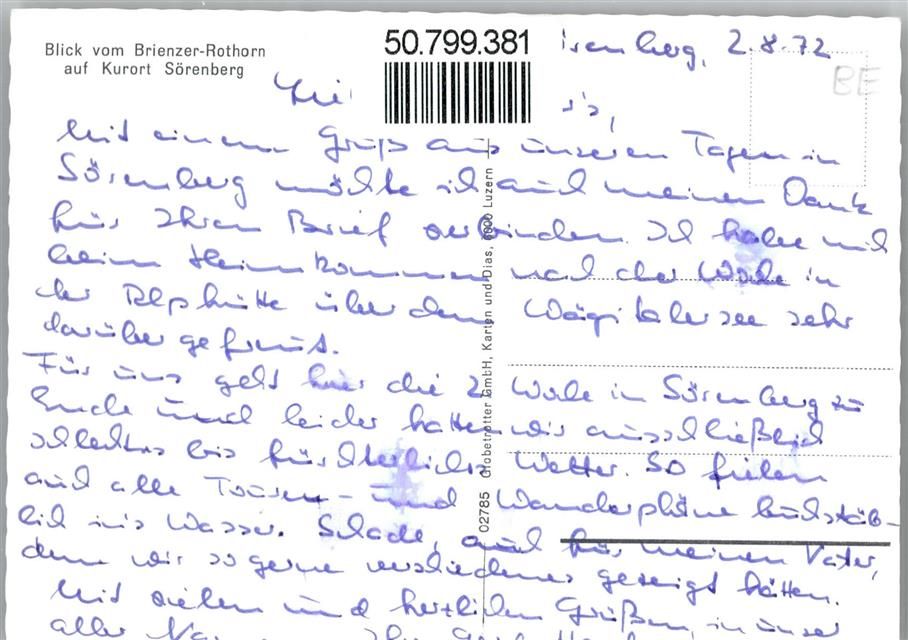 Blick vom Brienzer-Rothorn
auf Kurort Sörenberg
50.799.381
renberg, 2.8.72
BE
Mit einem Gruß aus unseren Tagen in
Sörenberg möchte ich auch meinen Dank
für Ihren Brief verbinden. Ich habe mich
beim Heimkommen nach der Woche in
der Alphütte über dem Wägitalersee sehr
darüber gefreut.
Für uns geht hier die 2. Woche in Sörenberg zu
Ende und leider hatten wir ausschließlich
schlechtes bis fürchterliches Wetter. So fielen
auch alle Touren- und Wanderpläne buchstäb-
lich ins Wasser. Schade, auch für meinen Vater,
dem wir so gerne verschiedenes gezeigt hätten.
Mit vielen und herzlichen Grüßen, in unser
aller
02785 Globetrotter GmbH, Karten und Dias, 6000 Luzern